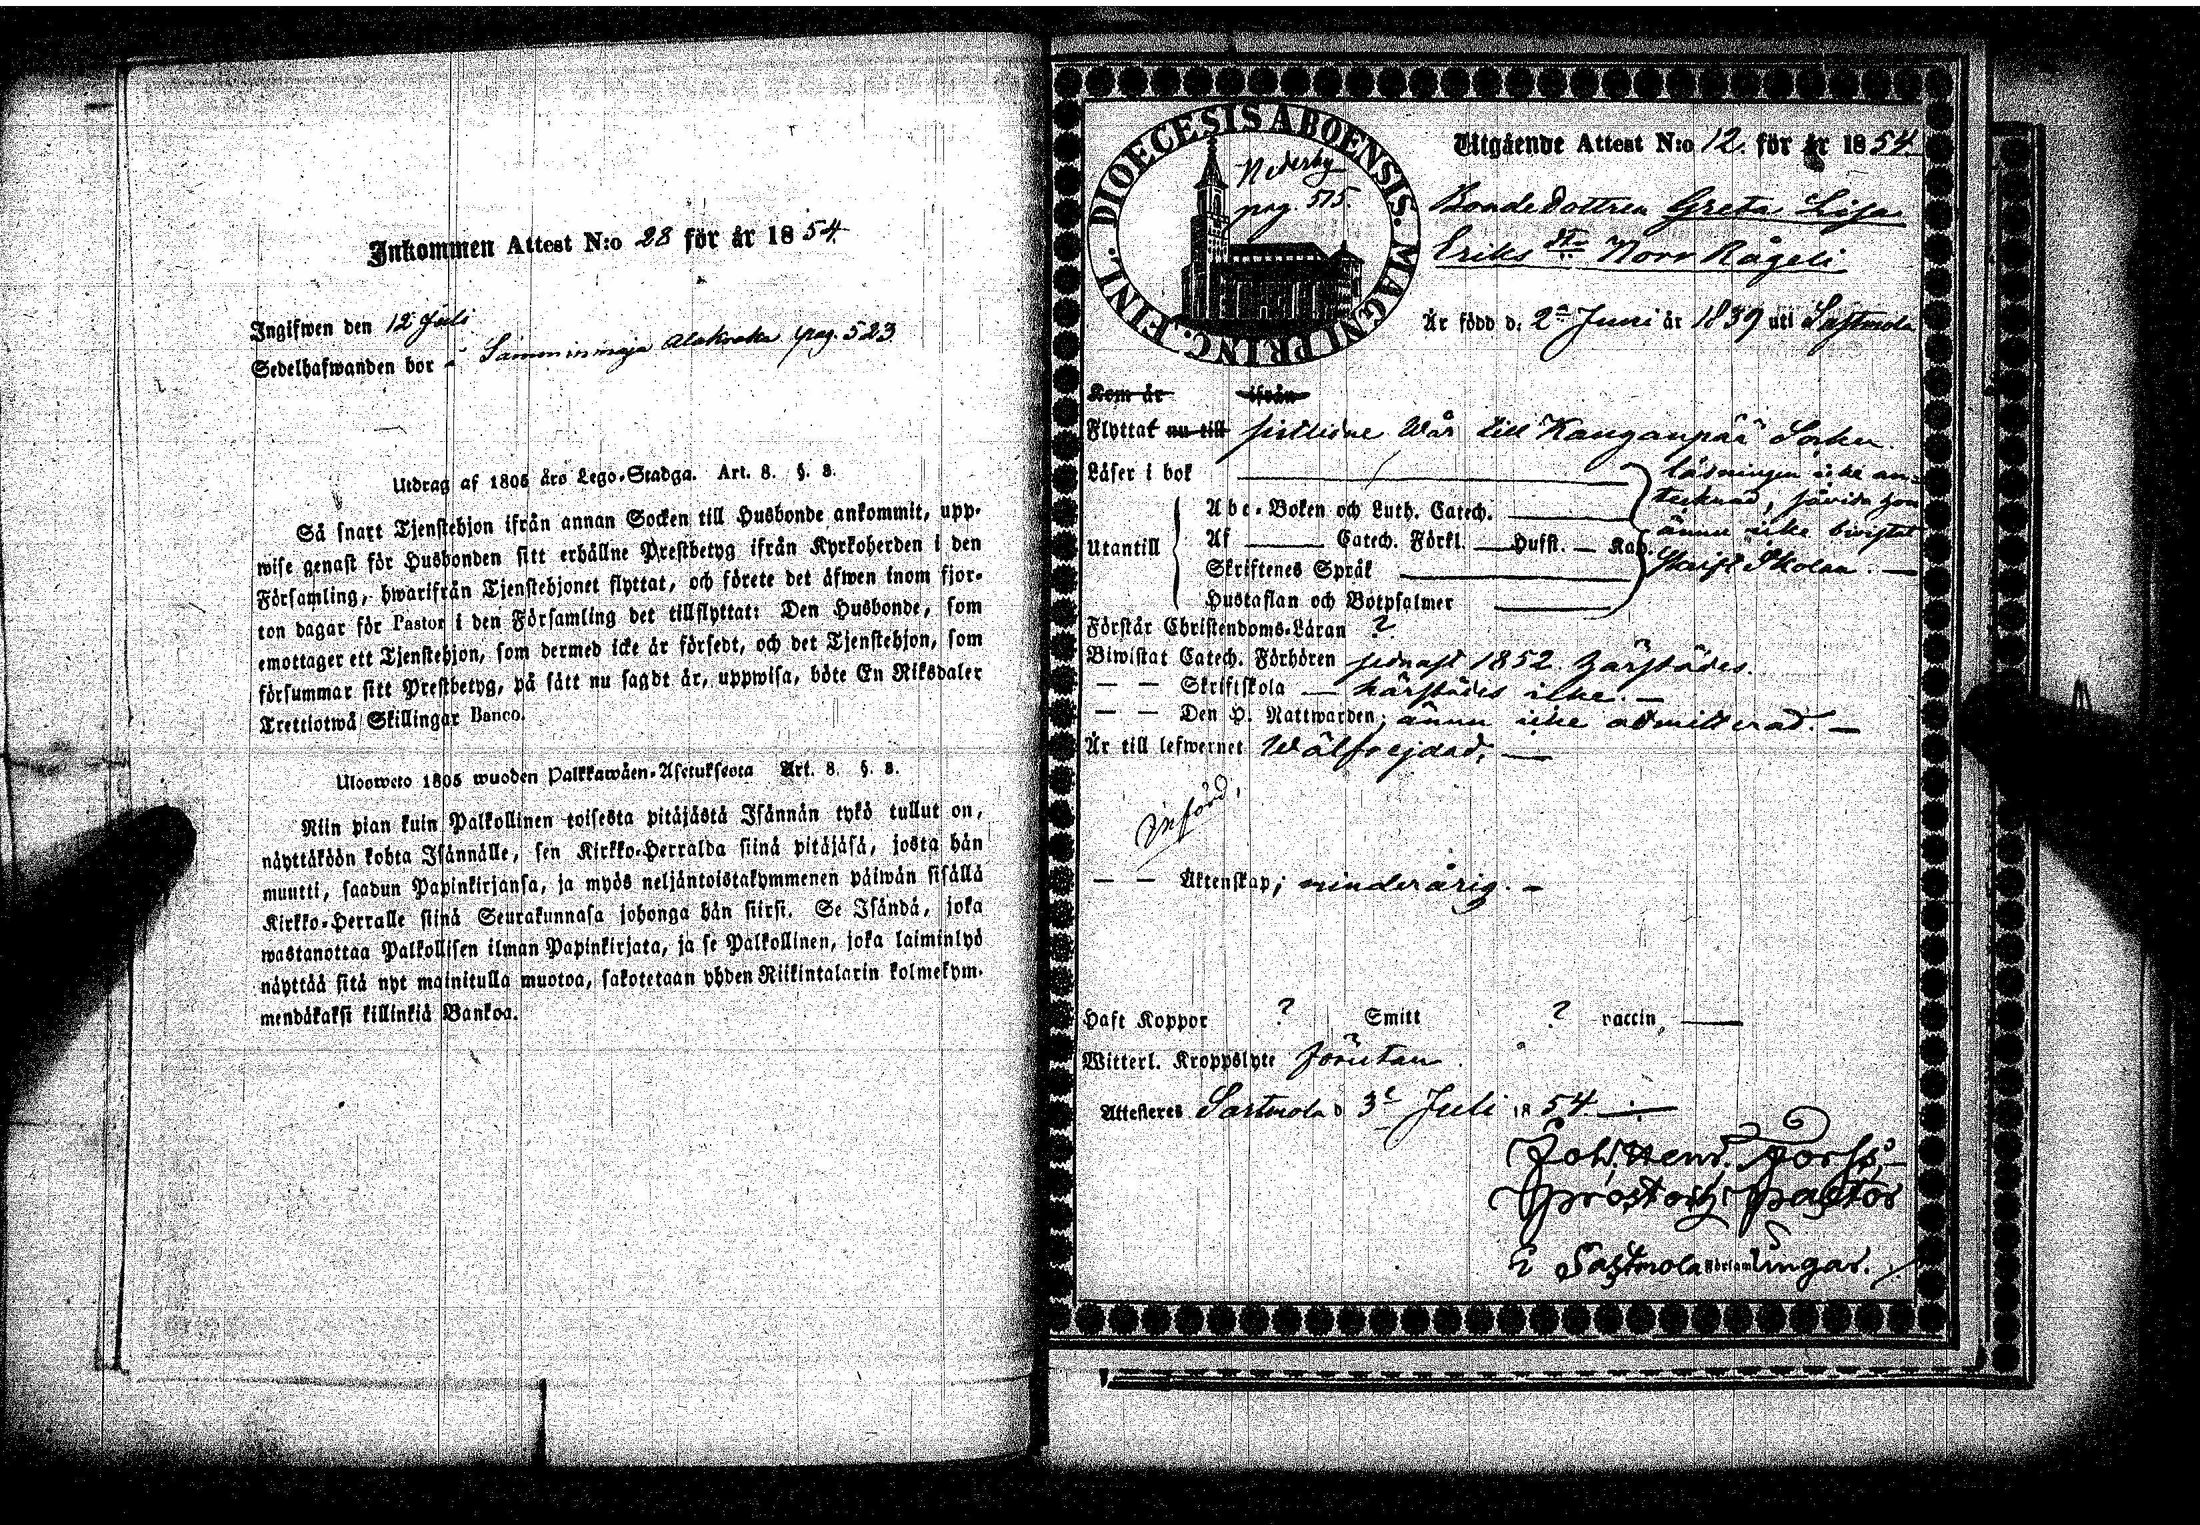 Inkommen Attest N:o 28 för år 1854.
Ingifwen den 12 Juli
Sedelhafwanden bor i Sammi Alakoska pag. 523
Utdrag af 1805 års Lego-Stadga. Art. 8. §. 8.
Så snart Tjenstehjon ifrån annan Socken till Husbonde ankommit, upp-
wise genast för Husbonden sitt erhållne Prestbetyg ifrån Kyrkoherden i den
Församling, hwarifrån Tjenstehjonet flyttat, och förete det åfwen inom fjor-
ton dagar för Pastor i den Församling det tillflyttat: Den Husbonde, som
emottager ett Tjenstehjon, som dermed icke är försedt, och det Tjenstehjon, som
försummar sitt Prestbetyg, på sått nu sagdt är, uppwisa, böte En Riksdaler
Trettiotwå Skillingar Banco.
Ulosweto 1805 wuoden Palkkawäen-Asetuksesta Art. 8. §. 8.
Niin pian kuin Palkollinen toisesta pitäjästä Isännän tykö tullut on,
näyttäköön kohta Isännälle, sen Kirkko-Herralda siinä pitäjäsä, josta hän
muutti, saadun Papinkirjansa, ja myös neljäntoistakymmenen päiwän sisällä
Kirkko-Herralle siinä Seurakunnasa johonga hän siirsi. Se Isändä, joka
wastanottaa Palkollisen ilman Papinkirjata, ja se Palkollinen, joka laiminlyö
näyttää sitä nyt mainitulla muotoa, sakotetaan yhden Riikintalarin kolmekym-
mendäkaksi killinkiä Bankoa.
DIOECESIS ABOENSIS. MAGNI PRINC. FINL.
Nederby
pag. 515.
Utgående Attest N:o 12. för år 1854.
Bondedottren Greta Lisa
Eriks dr Norr Rågeli
År född d. 2a Juni år 1839 uti Sastmola
Kom år ifrån
Flyttat nu till sistledne Wår till Kanganpää Socken.
Läser i bok
läsningen icke an-
tecknad, såvida hon
ännu icke bivistat
Skrift Skolan.
Utantill
Abc-Boken och Luth. Catech.
Af Catech. Förkl. Hufst. Kap.
Skriftenes Språk
Hustaflan och Botpsalmer
Förstår Christendoms-Läran ?
Biwistat Catech. Förhören sednast 1852. härstädes.
— — Skriftskola — härstädes icke. —
— — Den H. Nattwarden, ännu icke admitterad. —
Är till lefwernet Wälfrejdad. —
Införd.
— — Äktenskap, minderårig. —
Haft Koppor ? Smitt ? vaccin. —
Witterl. Kroppslyte förutan.
Attesteres Sastmola d 3e Juli 1854.
Joh. Henr. Forss,
Prost och Pastor
i Sastmola Församlingar.